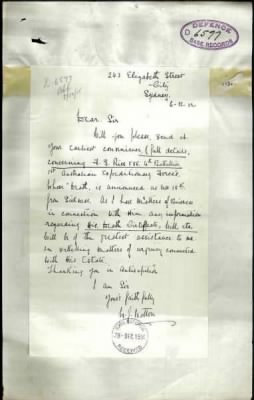 DEFENCE
6577
BASE RECORDS
243 Elizabeth Street
City
Sydney
Dear Sir
Will you please send at
your earliest convenience (full details,
concerning F. G. Rice 4th Battalion
1st Australian Expeditionary Forces,
whose death, is announced as Nov 18th
from Sickness. As I have Matters of Business
in connection with Him any information
regarding His Death Certificate, Will etc
will be of the greatest assistance to me
in settling matters of urgency connected
with His Estate.
Thanking you in Anticipation
I am Sir
Yours faithfully
Watson
RECEIVED